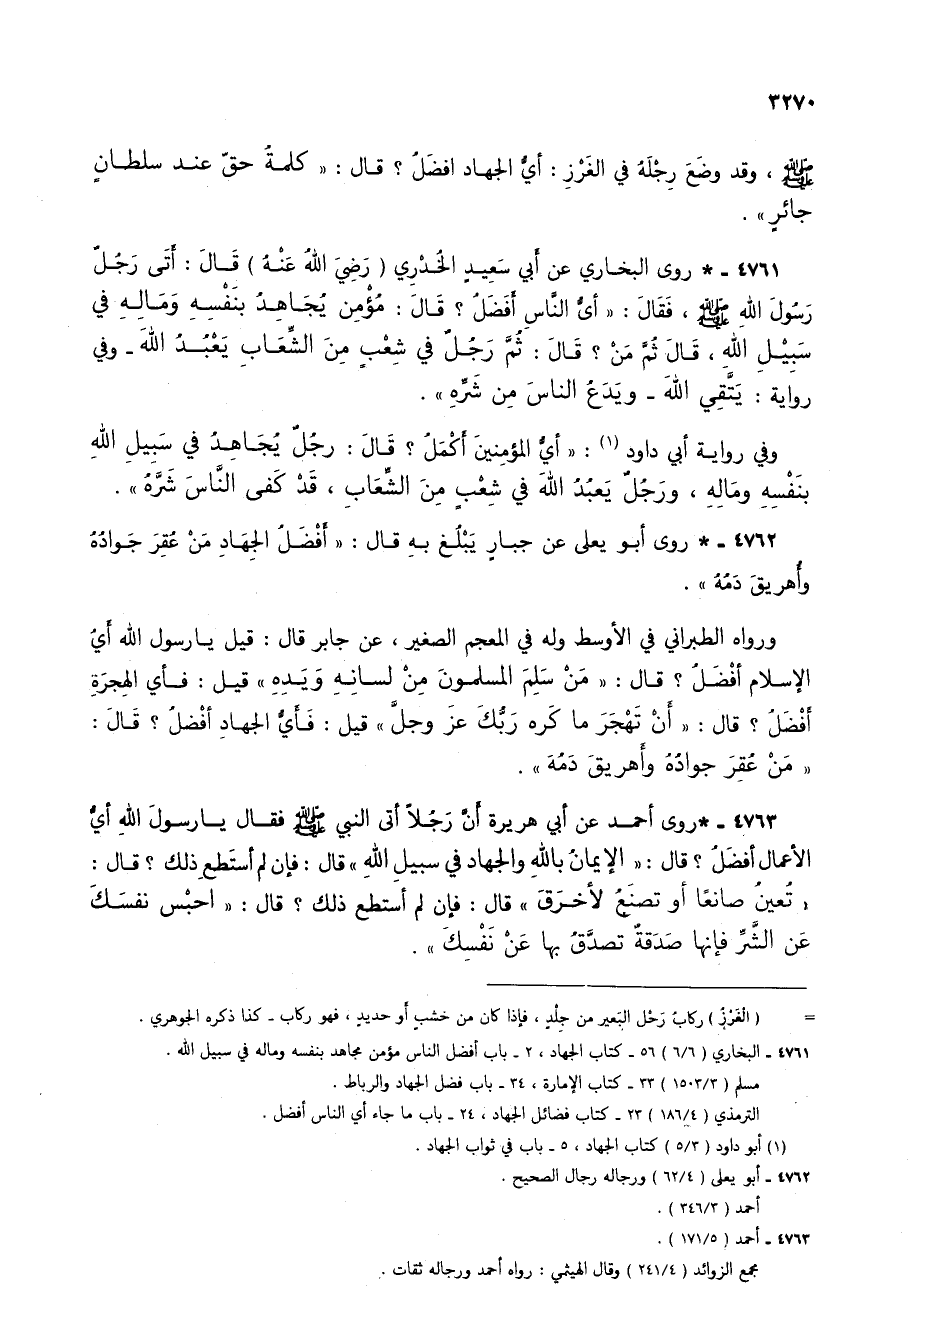 ٣٢٧٠
ﷺ ، وقد وضَعَ رِجْلَهُ في الغَرْزِ : أيُّ الجهاد افضَلُ ؟ قال : « كلمةُ حقّ عند سلطانٍ
جائرٍ » .
٤٧٦١ ـ * روى البخاري عن أبي سَعِيدٍ الخُدْرِي ( رَضِيَ اللهُ عَنْهُ ) قَالَ : أَتَى رَجُلٌ
رَسُولَ اللهِ ﷺ ، فَقَالَ : « أىُّ النَّاس أَفْضَلُ ؟ قَالَ : مُؤْمِن يُجَاهِدُ بنَفْسِهِ وَمَالِهِ في
سَبِيْلِ اللهِ ، قَالَ ثُمَّ مَنْ ؟ قَالَ : ثُمَّ رَجُلٌ في شِعْبٍ مِنَ الشِّعَابِ يَعْبُدُ اللهَ ـ وفي
رواية : يَتَّقِي اللهَ ـ ويَدَعُ الناسَ مِن شَرِّهِ » .
وفي روايةِ أبي داود (١) : « أيُّ المؤمِنينَ أَكْمَلُ ؟ قَالَ : رجُلٌ يُجَاهدُ في سَبِيلِ اللهِ
بنَفْسِهِ ومَالِهِ ، ورَجُلٌ يَعبُدُ اللهَ في شِعْبٍ مِنَ الشِّعَابِ ، قَدْ كَفى النَّاسَ شَرَّهُ » .
٤٧٦٢ ـ * روى أبو يعلى عن جبارٍ يَبْلُغ بهِ قال : « أَفْضَلُ الجهَادِ مَنْ عُقِرَ جَوادُهُ
وأُهريقَ دَمُهُ » .
ورواه الطبراني في الأوسط وله في المعجم الصغير ، عن جابر قال : قيل يارسول الله أَيُّ
الإسلام أفْضَلُ ؟ قال : « مَنْ سَلِمَ المسلمونَ مِنْ لسانِهِ وَيَدِهِ » قيل : فأي الهِجرَةِ
أفْضَلُ ؟ قال : « أَنْ تَهْجَرَ ما كَره رَبُّكَ عَز وجلَّ » قيل : فَأَيُّ الجهاد أفْضلُ ؟ قَالَ :
« مَنْ عُقِرَ جوادُهُ وأهريقَ دَمُهُ » .
٤٧٦٣ ـ *روى أحمد عن أبي هريرة أنَّ رَجُلاً أتى النبي ﷺ فقال يارسولَ اللهِ أيُّ
الأعمال أفضَلُ ؟ قال : « الإيمانُ باللهِ والجهاد في سبيل اللهِ » قال : فإن لم أستَطع ذلك ؟ قال :
، تُعينُ صانعًا أو تصنَعُ لأَخرَقَ » قال : فإن لم أستطع ذلك ؟ قال : « احبْس نفسَكَ
عَنِ الشَّرِّ فإنها صَدَقةٌ تصدَّقُ بها عَنْ نَفْسِكَ » .
= ( الغَرْزُ ) رِكابُ رَحْل البَعير من جِلْدٍ ، فإذا كان من خشبٍ أو حديدٍ ، فهو رِكاب ـ كذا ذكره الجوهري .
٤٧٦١ ـ البخاري ( ٦/٦ ) ٥٦ ـ كتاب الجهاد ، ٢ ـ باب أفضل الناس مؤمن مجاهد بنفسه وماله في سبيل الله .
مسلم ( ١٥٠٣/٣ ) ٣٣ ـ كتاب الإمارة ، ٣٤ ـ باب فضل الجهاد والرباط .
الترمذي ( ١٨٦/٤ ) ٢٣ ـ كتاب فضائل الجهاد ، ٢٤ ـ باب ما جاء أي الناس أفضل .
(١) أبو داود ( ٥/٣ ) كتاب الجهاد ، ٥ ـ باب في ثواب الجهاد .
٤٧٦٢ ـ أبو يعلى ( ٦٢/٤ ) ورجاله رجال الصحيح .
أحمد ( ٣٤٦/٣ ) .
٤٧٦٣ ـ أحمد ( ١٧١/٥ ) .
مجمع الزوائد ( ٢٤١/٤ ) وقال الهيثمي : رواه أحمد ورجاله ثقات .